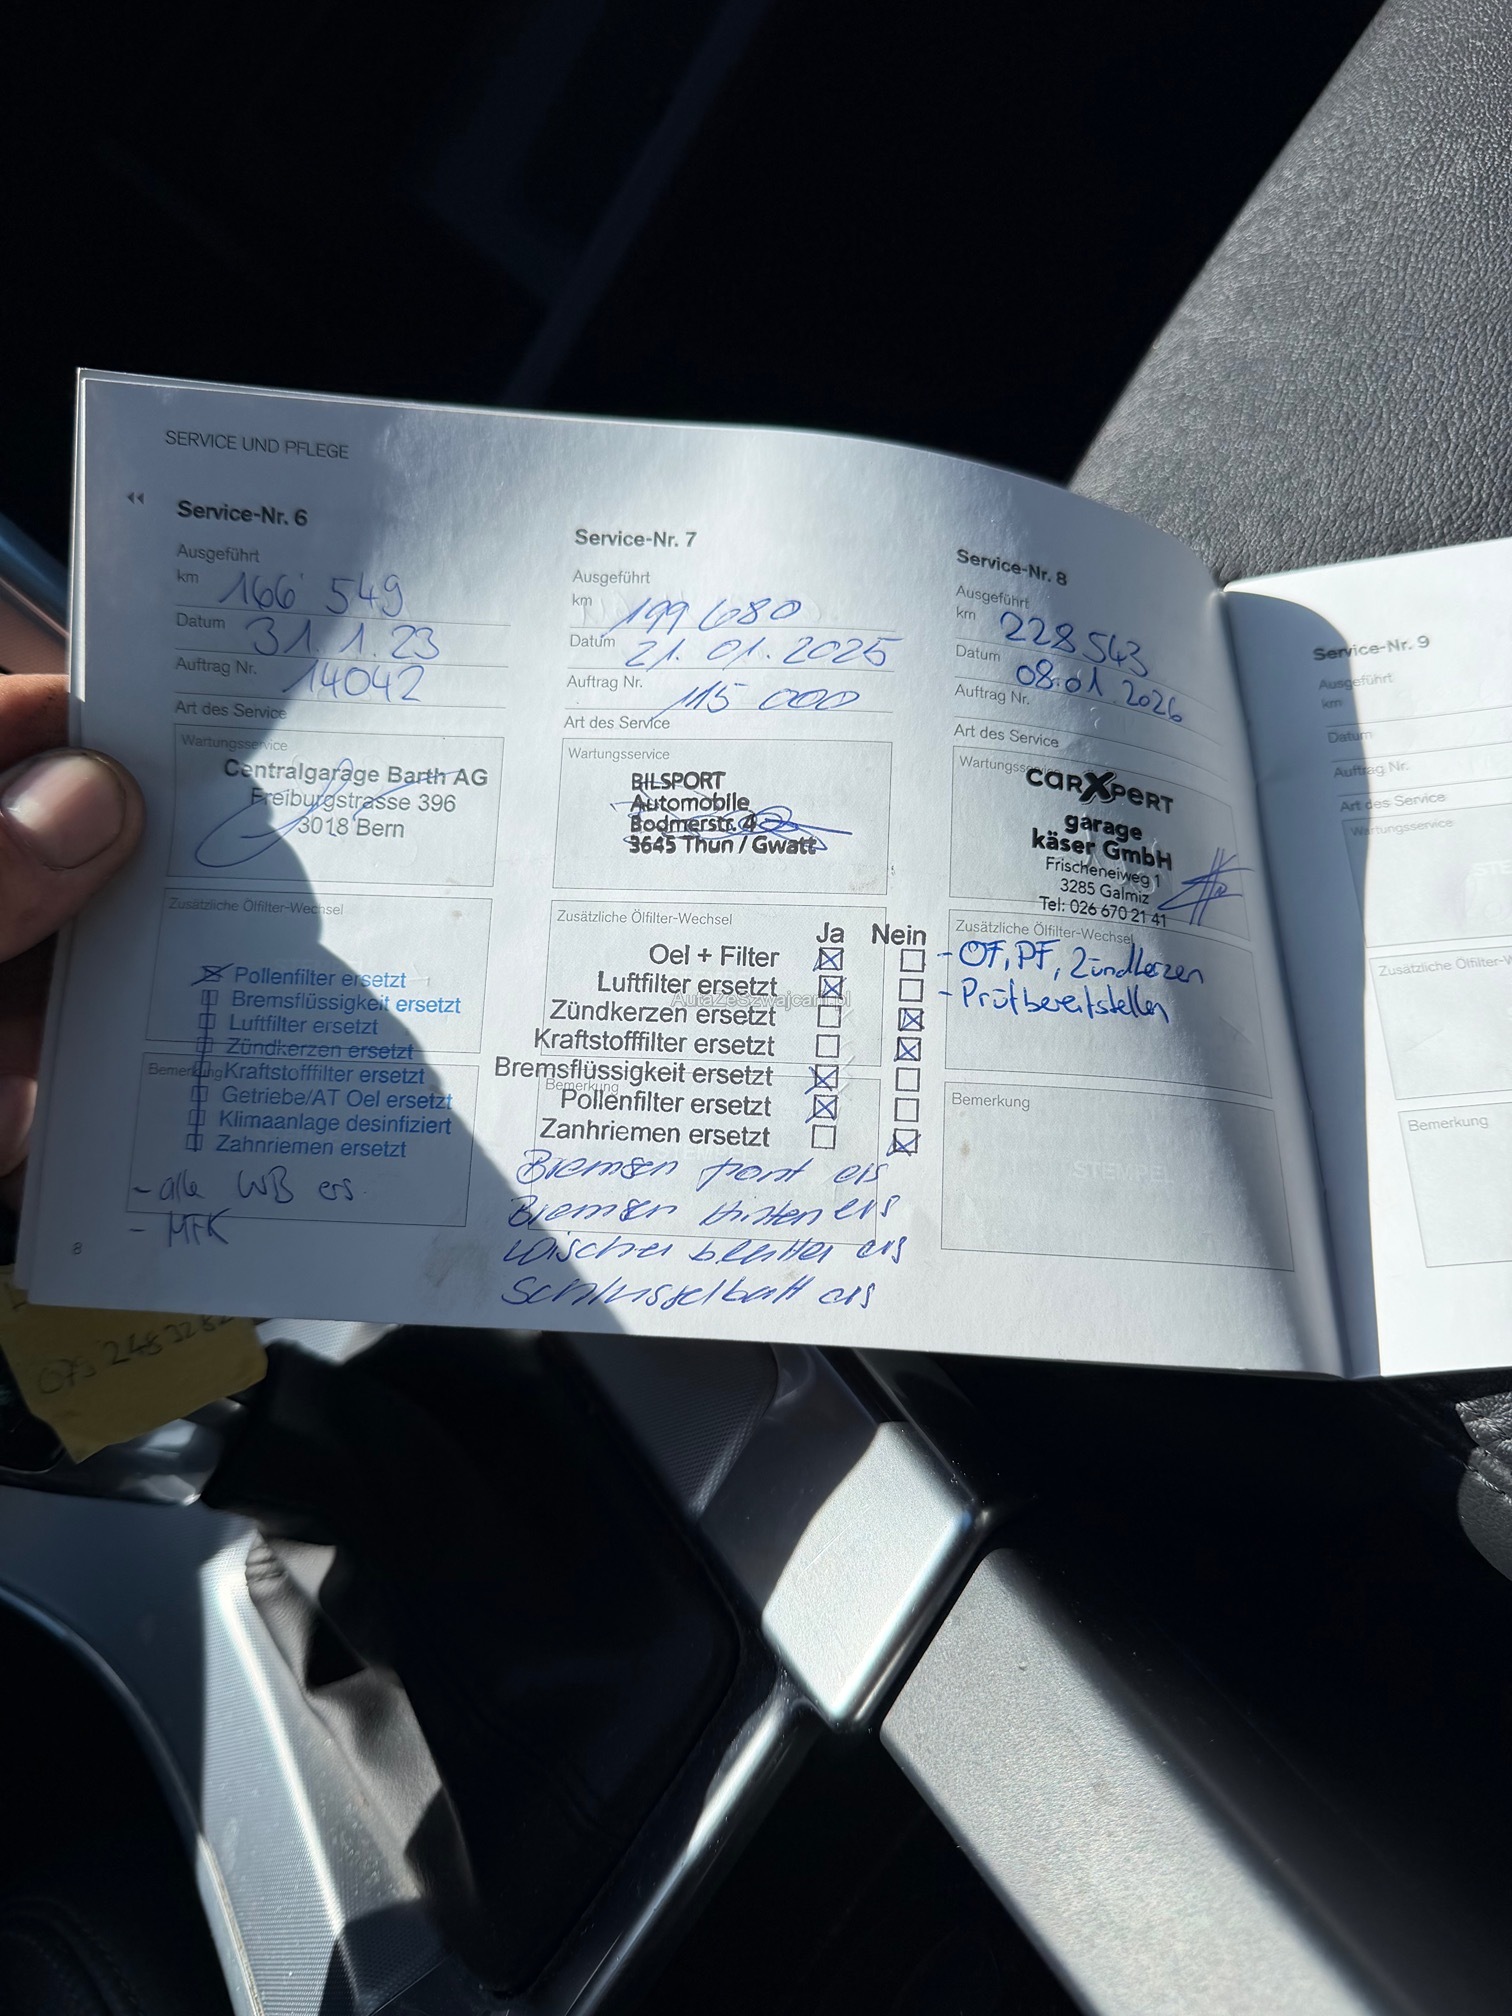 SERVICE UND PFLEGE
Service-Nr. 6
Ausgeführt
km 166 549
Datum 31.1.23
Auftrag Nr. 14042
Art des Service
Wartungsservice
Centralgarage Barth AG
Freiburgstrasse 396
3018 Bern
Zusätzliche Ölfilter-Wechsel
Pollenfilter ersetzt
Bremsflüssigkeit ersetzt
Luftfilter ersetzt
Zündkerzen ersetzt
Bemerkung
Kraftstofffilter ersetzt
Getriebe/AT Oel ersetzt
Klimaanlage desinfiziert
Zahnriemen ersetzt
- alle WB ers.
- MFK
8
Service-Nr. 7
Ausgeführt
km 199 680
Datum 21. 01. 2025
Auftrag Nr. 115 000
Art des Service
Wartungsservice
BILSPORT
Automobile
Bodmerstr. 4
3645 Thun / Gwatt
Zusätzliche Ölfilter-Wechsel
Ja Nein
Oel + Filter
Luftfilter ersetzt
AutaZeSzwajcarii.pl
Zündkerzen ersetzt
Kraftstofffilter ersetzt
Bremsflüssigkeit ersetzt
Bemerkung
Pollenfilter ersetzt
Zanhriemen ersetzt
Bremsen front ers
Bremsen hinten ers
Wischer blätter ers
Schlüsselbatt ers
Service-Nr. 8
Ausgeführt
km 228 543
Datum 08.01.2026
Auftrag Nr.
Art des Service
Wartungsservice
carXpert
garage
käser GmbH
Frischeneiweg 1
3285 Galmiz
Tel: 026 670 21 41
Zusätzliche Ölfilter-Wechsel
- OF, PF, Zündkerzen
- Prüfbereitstellen
Bemerkung
STEMPEL
Service-Nr. 9
Ausgeführt
km
Datum
Auftrag Nr.
Art des Service
Wartungsservice
Zusätzliche Ölfilter-W
Bemerkung